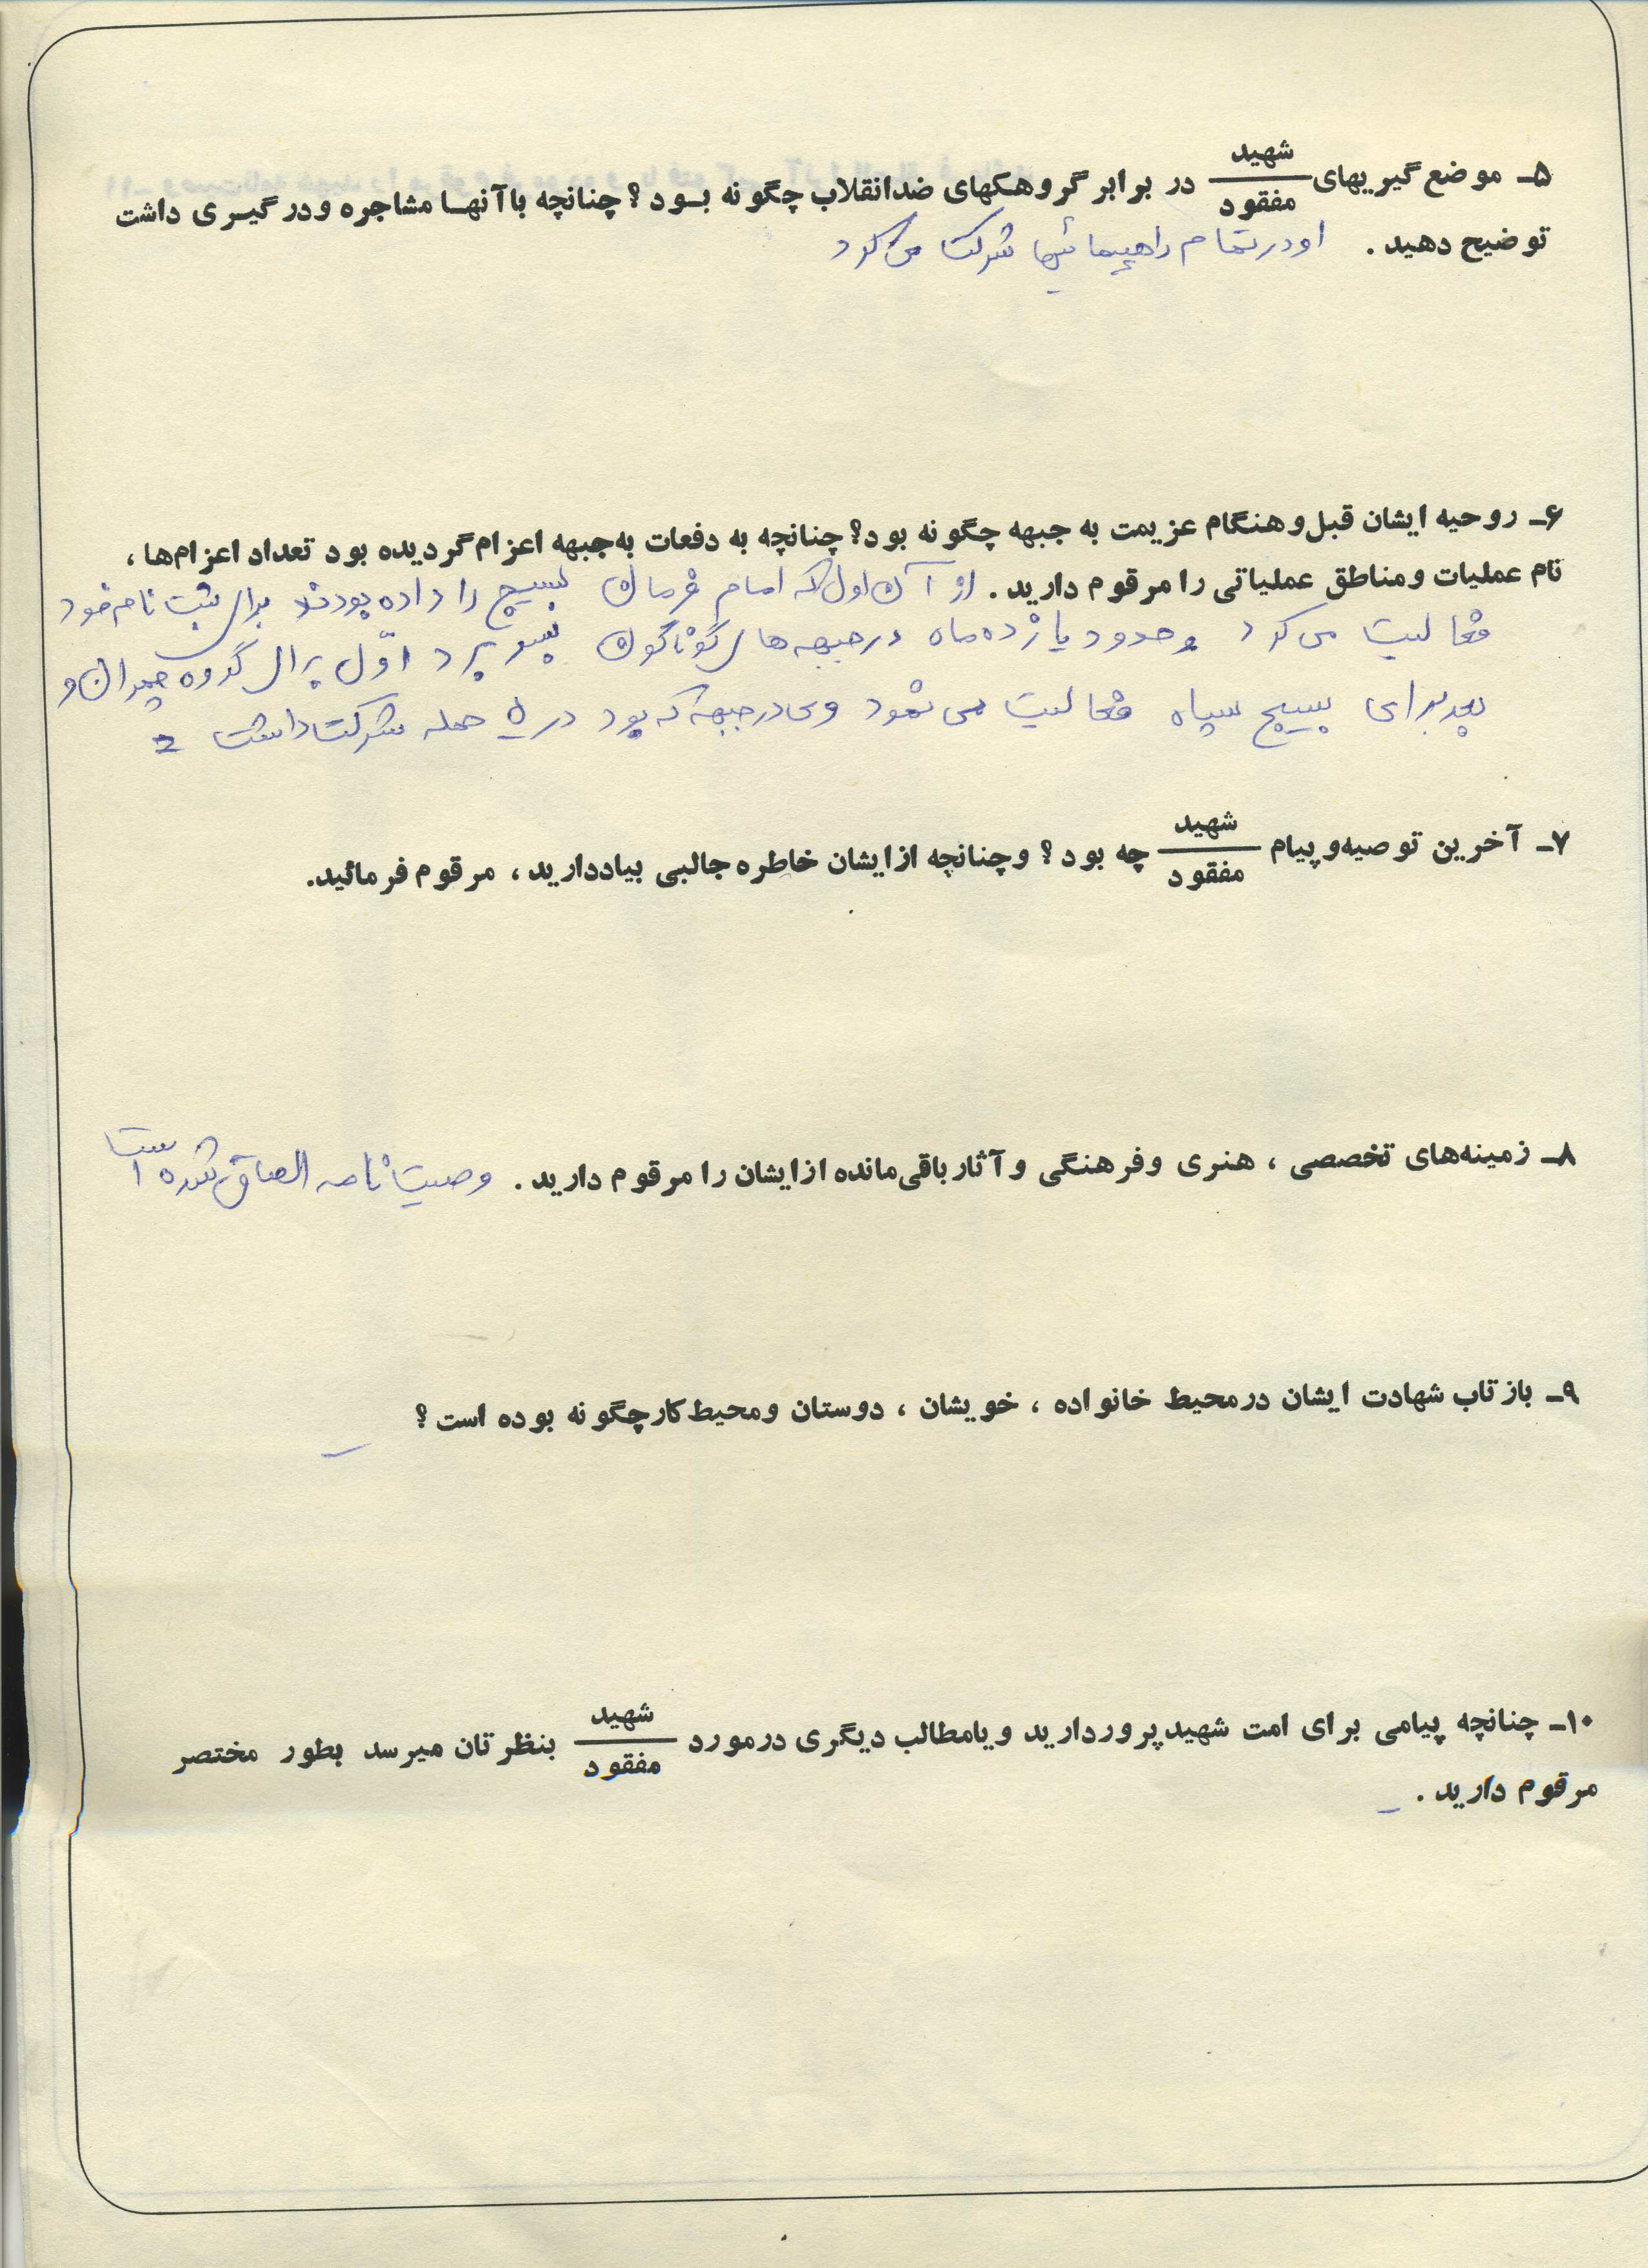 ۵ـ موضع‌گیریهای شهید / مفقود در برابر گروهکهای ضدانقلاب چگونه بـود؟ چنانچه باآنهـا مشاجره ودرگیـری داشت
توضیح دهید. او در تمام راهپیمائیها شرکت می‌کرد
۶ـ روحیه ایشان قبل‌وهنگام عزیمت به جبهه چگونه بود؟ چنانچه به دفعات به‌جبهه اعزام‌گردیده بود تعداد اعزام‌ها،
نام عملیات ومناطق عملیاتی را مرقوم دارید. از آن اول که امام فرمان بسیج را داده بودند برای ثبت نام خود
فعالیت می‌کرد و حدود یازده ماه در جبهه‌های گوناگون بسر برد اوّل برای گروه چمران و
بعد برای بسیج سپاه فعالیت می‌نمود وی در جبهه که بود در ۵ حمله شرکت داشت
۷ـ آخرین توصیه‌وپیام شهید / مفقود چه بود؟ وچنانچه ازایشان خاطره جالبی بیاددارید، مرقوم فرمائید.
۸ـ زمینه‌های تخصصی، هنری وفرهنگی وآثارباقی‌مانده ازایشان را مرقوم دارید. وصیت نامه الصاق شده است
۹ـ بازتاب شهادت ایشان درمحیط خانواده، خویشان، دوستان ومحیط‌کارچگونه بوده است؟ –
۱۰ـ چنانچه پیامی برای امت شهیدپروردارید ویامطالب دیگری درمورد شهید / مفقود بنظرتان میرسد بطور مختصر
مرقوم دارید. –